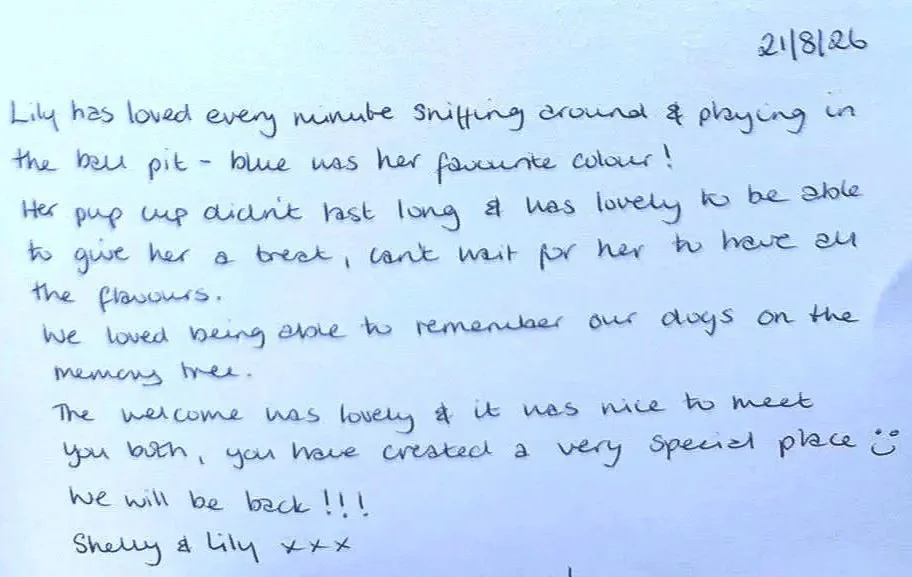 21/8/26
Lily has loved every minute sniffing around & playing in
the ball pit - blue was her favourite colour!
Her pup cup didn't last long & was lovely to be able
to give her a treat, can't wait for her to have all
the flavours.
We loved being able to remember our dogs on the
memory tree.
The welcome was lovely & it was nice to meet
you both, you have created a very special place :)
We will be back!!!
Shelly & Lily xxx